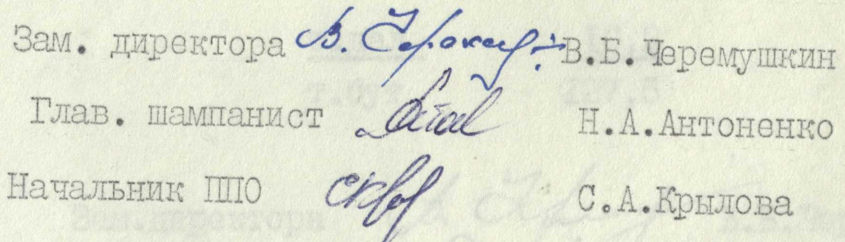 Зам. директора В.Б.Черемушкин
Глав. шампанист Н.А.Антоненко
Начальник ППО С.А.Крылова